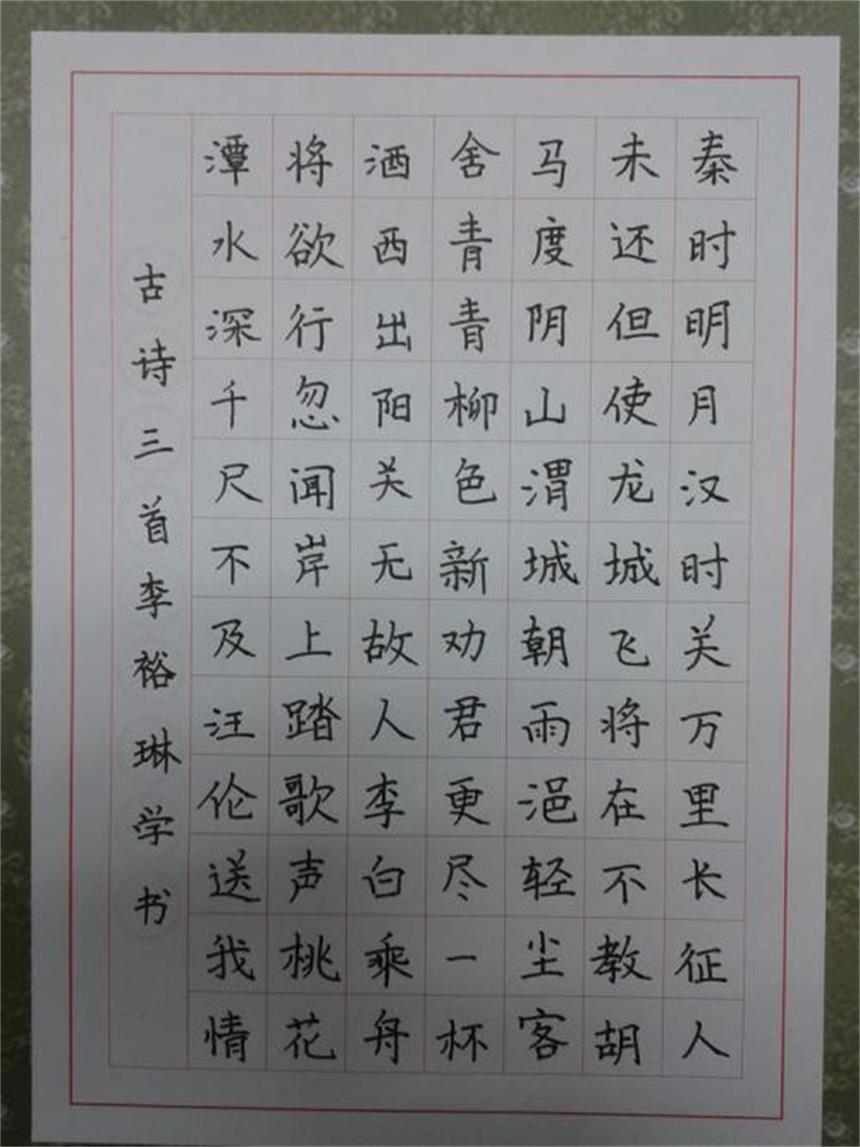 秦时明月汉时关万里长征人
未还但使龙城飞将在不教胡
马度阴山渭城朝雨浥轻尘客
舍青青柳色新劝君更尽一杯
酒西出阳关无故人李白乘舟
将欲行忽闻岸上踏歌声桃花
潭水深千尺不及汪伦送我情
古诗三首李裕琳学书